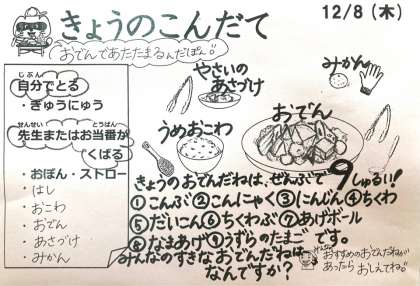 きょうのこんだて
12/8（木）
おでんであたたまるんだぽん♪
じぶん
自分でとる
・ぎゅうにゅう
せんせい とうばん
先生またはお当番が
くばる
・おぼん・ストロー
・はし
・おこわ
・おでん
・あさづけ
・みかん
やさいの
あさづけ
みかん
うめおこわ
おでん
きょうのおでんだねは、ぜんぶで9しゅるい!
①こんぶ②こんにゃく③にんじん④ちくわ
⑤だいこん⑥ちくわぶ⑦あげボール
⑧なまあげ⑨うずらのたまごです。
みんなのすきなおでんだねは
なんですか?
おすすめのおでんだねが
あったら おしえてね♪